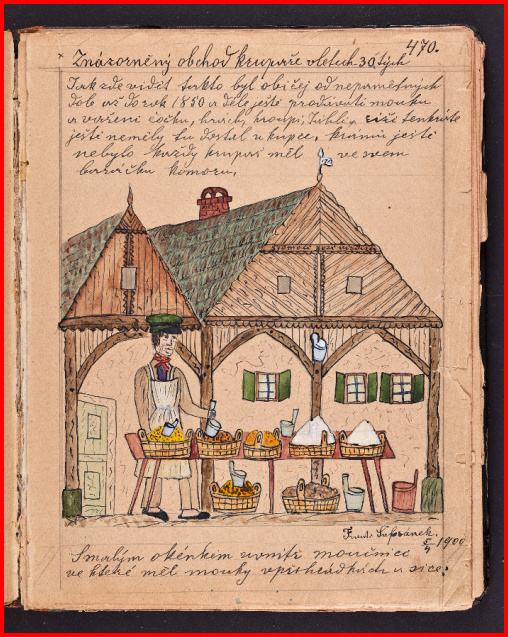 470.
Znázorněný obchod krupaře v letech 30tých
Jak zde vidět takto byl običej od nepamětných
dob až do rok 1850 a déle ještě prodávati mouku
a vaření čočku, hrách, kroupi, Jáhli a
ještě neměly tu dostal u kupce. krámu ještě
nebylo každy krupař měl ve svem
baráčku komoru.
Frant. Safránek. 5/4 1900
Smalým okénkem uvnitř moučnice
ve které měl mouky v přihrádkách a sice: